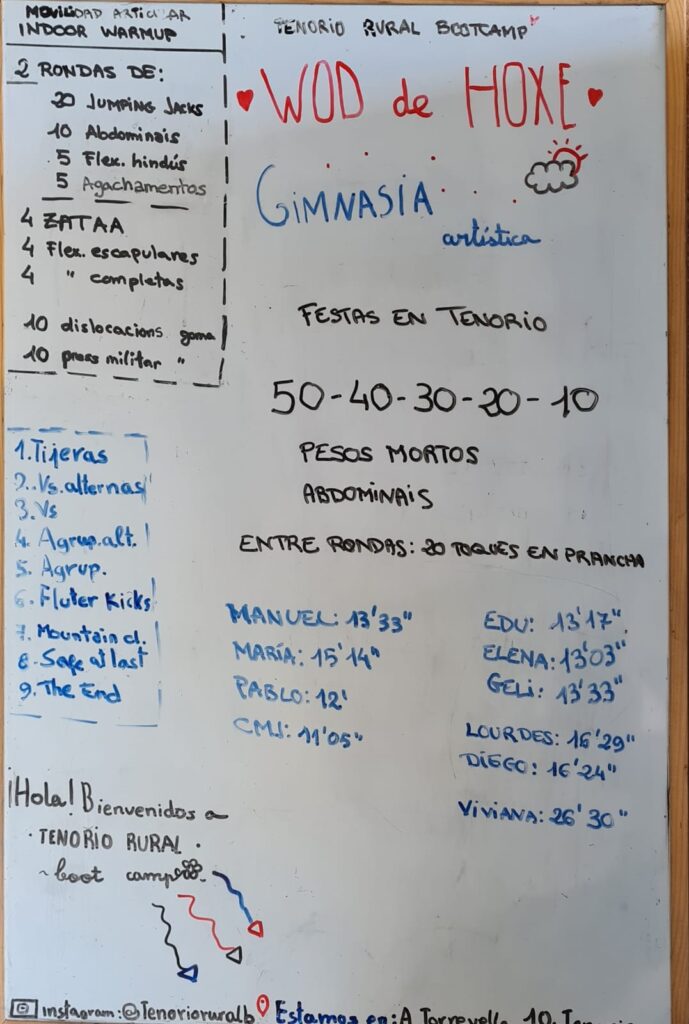 MOVILIDAD ARTICULAR
INDOOR WARMUP
2 RONDAS DE:
20 JUMPING JACKS
10 Abdominais
5 Flex. hindús
5 Agachamentos
4 ZATAA
4 Flex. escapulares
4 " completas
10 dislocacions goma
10 press militar "
1. Tijeras
2. Vs. alternas
3. Vs
4. Agrup. alt.
5. Agrup.
6. Fluter Kicks
7. Mountain cl.
8. Safe at last
9. The End
¡Hola! Bienvenidos a
· TENORIO RURAL ·
~ boot camp
TENORIO RURAL BOOTCAMP
WOD de HOXE
GIMNASIA
artística
FESTAS EN TENORIO
50-40-30-20-10
PESOS MORTOS
ABDOMINAIS
ENTRE RONDAS: 20 TOQUES EN PRANCHA
MANUEL: 13'33"
MARÍA: 15'14"
PABLO: 12'
CMJ: 11'05"
EDU: 13'17"
ELENA: 13'03"
GELI: 13'33"
LOURDES: 16'29"
DIEGO: 16'24"
VIVIANA: 26'30"
instagram: @Tenorioruralb Estamos en: A Torrevella, 10. Tenorio